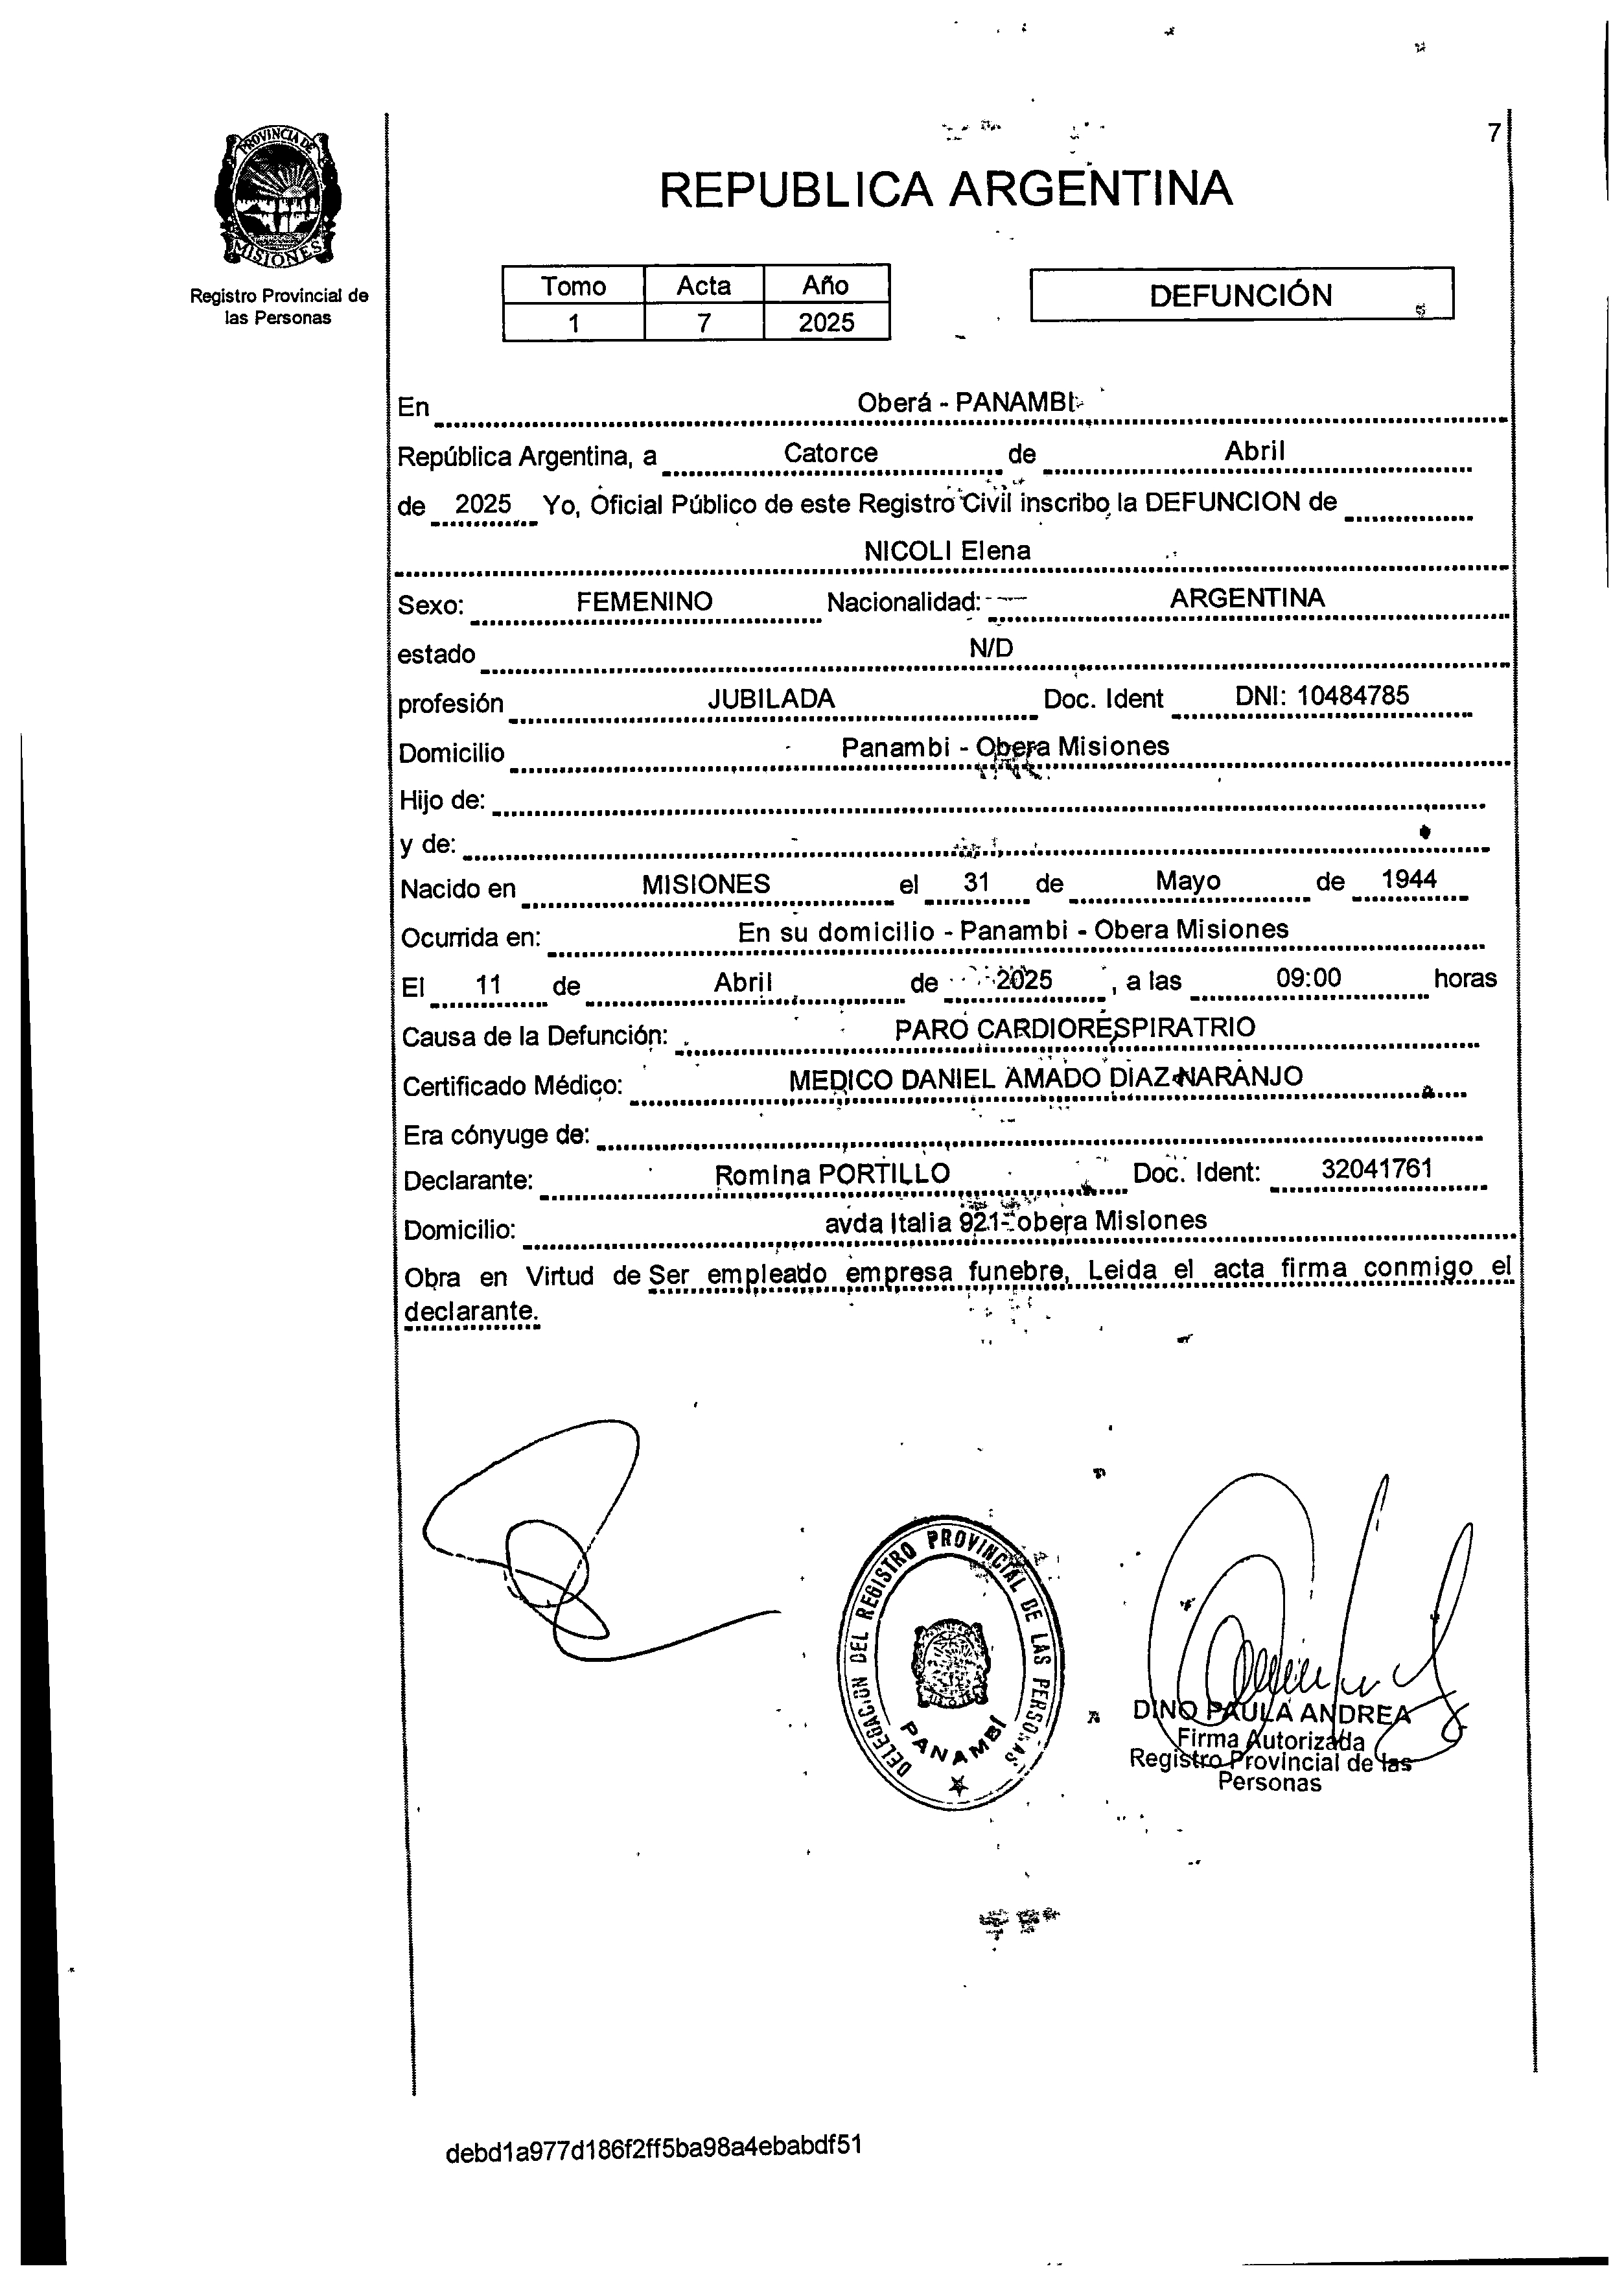 7
PROVINCIA DE
MISIONES
Registro Provincial de
las Personas
REPUBLICA ARGENTINA
Tomo Acta Año
1 7 2025
DEFUNCIÓN
En Oberá - PANAMBI
República Argentina, a Catorce de Abril
de 2025 Yo, Oficial Público de este Registro Civil inscribo la DEFUNCION de
NICOLI Elena
Sexo: FEMENINO Nacionalidad: ARGENTINA
estado N/D
profesión JUBILADA Doc. Ident DNI: 10484785
Domicilio Panambi - Obera Misiones
Hijo de:
y de:
Nacido en MISIONES el 31 de Mayo de 1944
Ocurrida en: En su domicilio - Panambi - Obera Misiones
El 11 de Abril de 2025 , a las 09:00 horas
Causa de la Defunción: PARO CARDIORESPIRATRIO
Certificado Médico: MEDICO DANIEL AMADO DIAZ NARANJO
Era cónyuge de:
Declarante: Romina PORTILLO Doc. Ident: 32041761
Domicilio: avda Italia 921- obera Misiones
Obra en Virtud de Ser empleado empresa funebre, Leida el acta firma conmigo el
declarante.
DELEGACION DEL REGISTRO PROVINCIAL DE LAS PERSONAS
PANAMBI
DINO PAULA ANDREA
Firma Autorizada
Registro Provincial de las
Personas
debd1a977d186f2ff5ba98a4ebabdf51